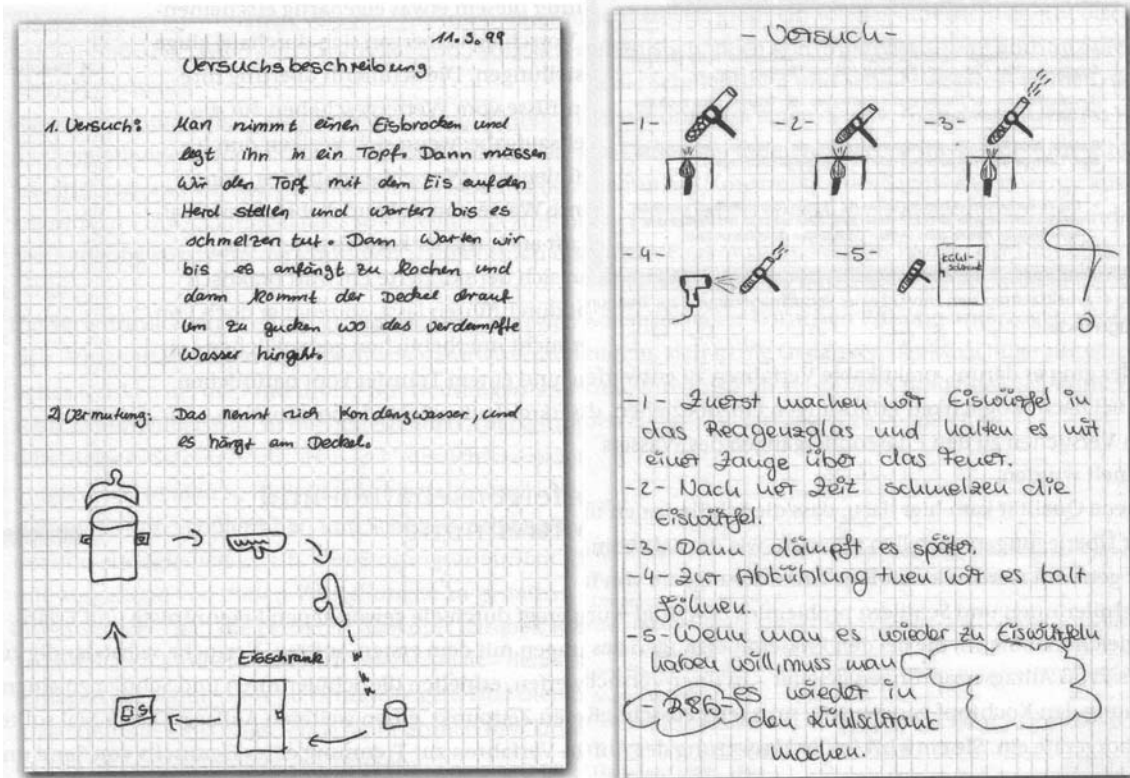 11.3.99
Versuchsbeschreibung
1. Versuch: Man nimmt einen Eisbrocken und
legt ihn in ein Topf. Dann müssen
wir den Topf mit dem Eis auf den
Herd stellen und warten bis es
schmelzen tut. Dann warten wir
bis es anfängt zu kochen und
dann kommt der Deckel drauf
um zu gucken wo das verdampfte
Wasser hingeht.
2) Vermutung: Das nennt sich Kondenzwasser, und
es hängt am Deckel.
Eisschrank
EIS
- Versuch -
-1- -2- -3-
-4- -5- Kühl-
schrank
-1- Zuerst machen wir Eiswürfel in
das Reagenzglas und halten es mit
einer Zange über das Feuer.
-2- Nach ner Zeit schmelzen die
Eiswürfel.
-3- Dann dämpft es später.
-4- Zur Abkühlung tuen wir es kalt
föhnen.
-5- Wenn man es wieder zu Eiswürfeln
haben will, muss man
es wieder in
den Kühlschrank
machen.